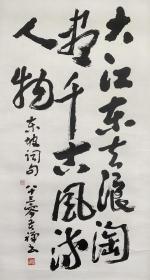 大江东去浪淘
尽千古风流
人物
东坡词句